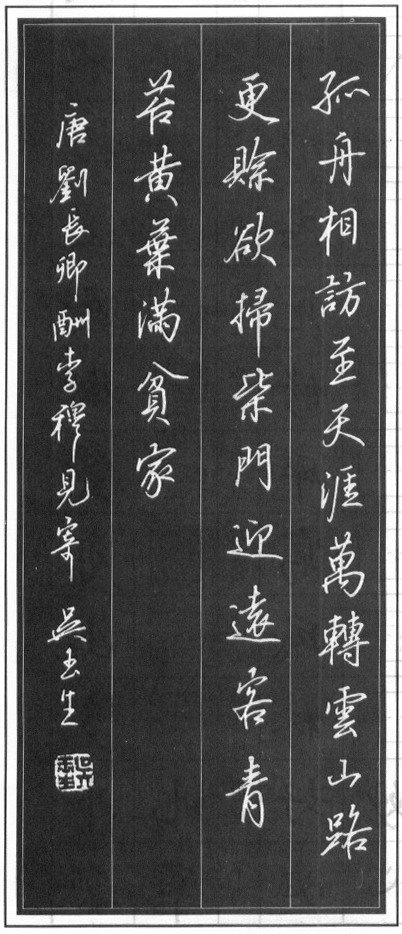 孤舟相訪至天涯萬轉雲山路
更賒欲掃柴門迎遠客青
苔黃葉滿貧家
唐劉長卿酬李穆見寄 吳玉生